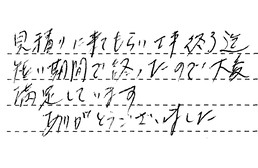 見積りに来てもらい工事終る迄
短い期間で終ったので大変
満足しています
ありがとうございました